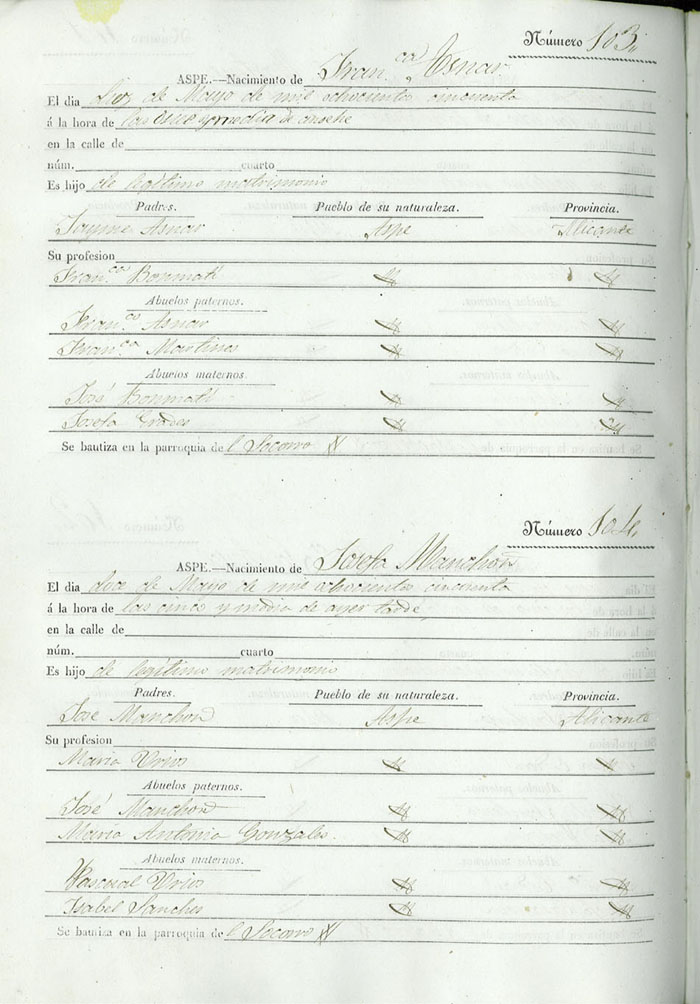 Número 103.
ASPE.—Nacimiento de Fran.ca Asnar
El dia diez de Mayo de mil ochocientos cincuenta
á la hora de las once y media de anoche
en la calle de
núm. cuarto
Es hijo de legitimo matrimonio
Padres. Pueblo de su naturaleza. Provincia.
Jayme Asnar Aspe Alicante
Su profesion
Fran.ca Bonmati
Abuelos paternos.
Fran.co Asnar
Fran.ca Martines
Abuelos maternos.
José Bonmati
Josefa
Se bautiza en la parroquia de l Socorro
Número 104.
ASPE.—Nacimiento de Josefa Manchon
El dia doce de Mayo de mil ochocientos cincuenta
á la hora de las cinco y media de ayer tarde
en la calle de
núm. cuarto
Es hijo de legitimo matrimonio
Padres. Pueblo de su naturaleza. Provincia.
José Manchon Aspe Alicante
Su profesion
Maria Urios
Abuelos paternos.
José Manchon
Maria Antonia Gonzales
Abuelos maternos.
Pascual Urios
Isabel Sanches
Se bautiza en la parroquia de l Socorro